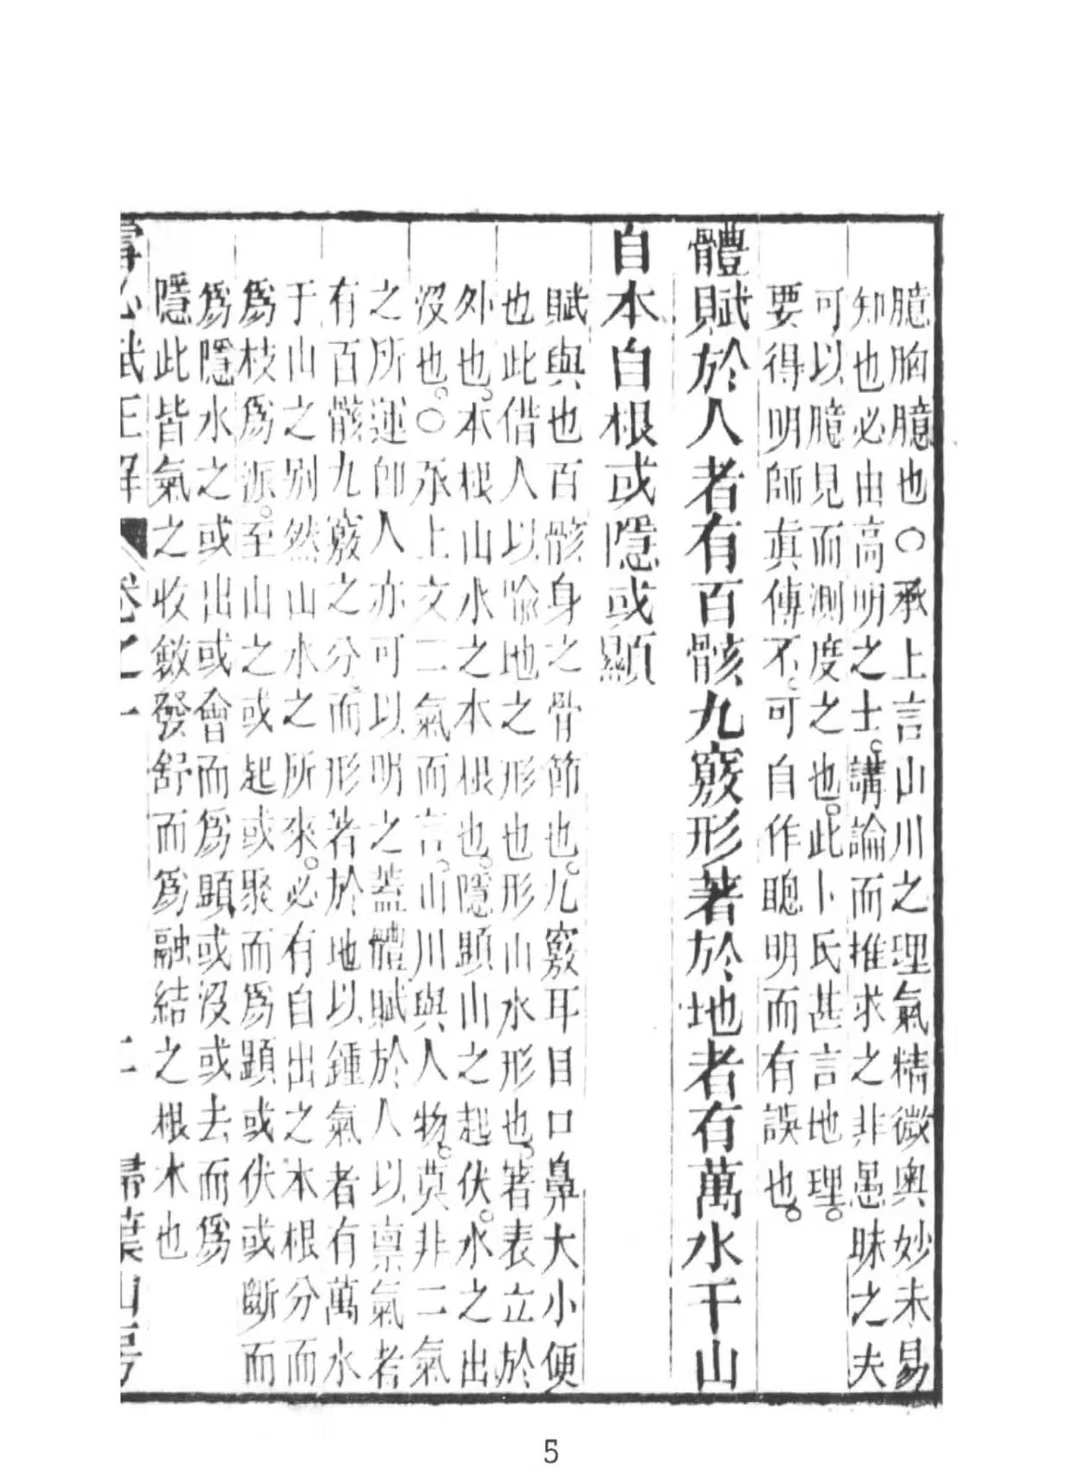 臆胸臆也○承上言山川之理氣精微奥妙未易
知也必由高明之士講論而推求之非愚昧之夫
可以臆見而測度之也此卜氏甚言地理
要得明師眞傳不可自作聰明而有誤也
體賦於人者有百骸九竅形著於地者有萬水千山
自本自根或隱或顯
賦與也百骸身之骨節也九竅耳目口鼻大小便
也此借人以喻地之形也形山水形也著表立於
外也本根山水之本根也隱顯山之起伏水之出
沒也○承上文二氣而言山川與人物莫非二氣
之所運卽人亦可以明之蓋體賦於人以禀氣者
有百骸九竅之分而形著於地以鍾氣者有萬水
于山之别然山水之所來必有自出之本根分而
爲枝爲源至山之或起或聚而爲顯或伏或斷而
爲隱水之或出或會而爲顯或沒或去而爲
隱此皆氣之收斂發舒而爲融結之根木也
卷之一
二